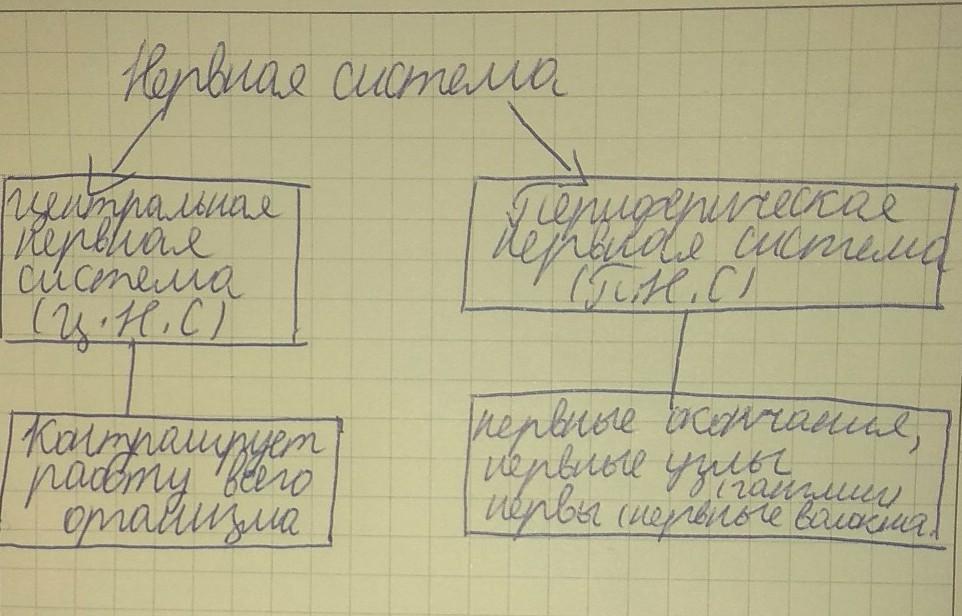 Нервная система
Центральная
нервная
система
(Ц.Н.С)
Контролирует
работу всего
организма
Периферическая
нервная система
(П.Н.С)
нервные окончания,
нервные узлы
(ганглии)
нервы (нервные волокна)